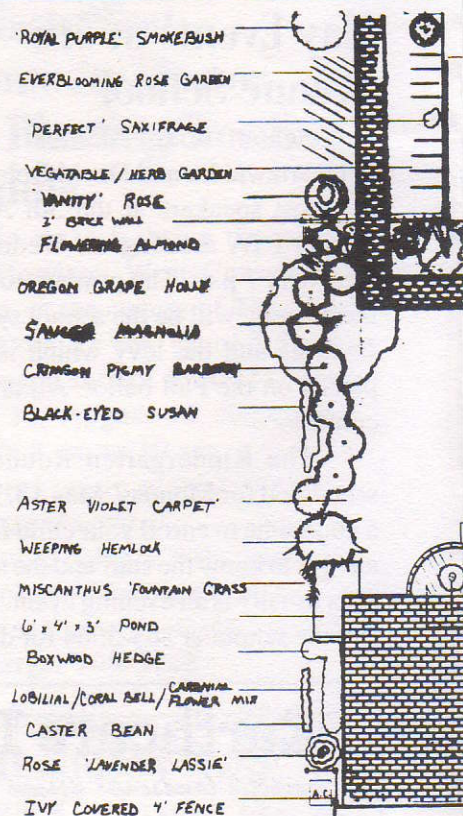 'ROYAL PURPLE' SMOKEBUSH
EVERBLOOMING ROSE GARDEN
'PERFECT' SAXIFRAGE
VEGATABLE / HERB GARDEN
'VANITY' ROSE
3' BRICK WALL
FLOWERING ALMOND
OREGON GRAPE HOLLY
MAGNOLIA
CRIMSON PIGMY
BLACK-EYED SUSAN
ASTER 'VIOLET CARPET'
WEEPING HEMLOCK
MISCANTHUS 'FOUNTAIN GRASS
6' x 4' x 3' POND
BOXWOOD HEDGE
LOBILIAL/CORAL BELL/CARDINAL FLOWER MIX
CASTER BEAN
ROSE 'LAVENDER LASSIE'
A.C.
IVY COVERED 4' FENCE